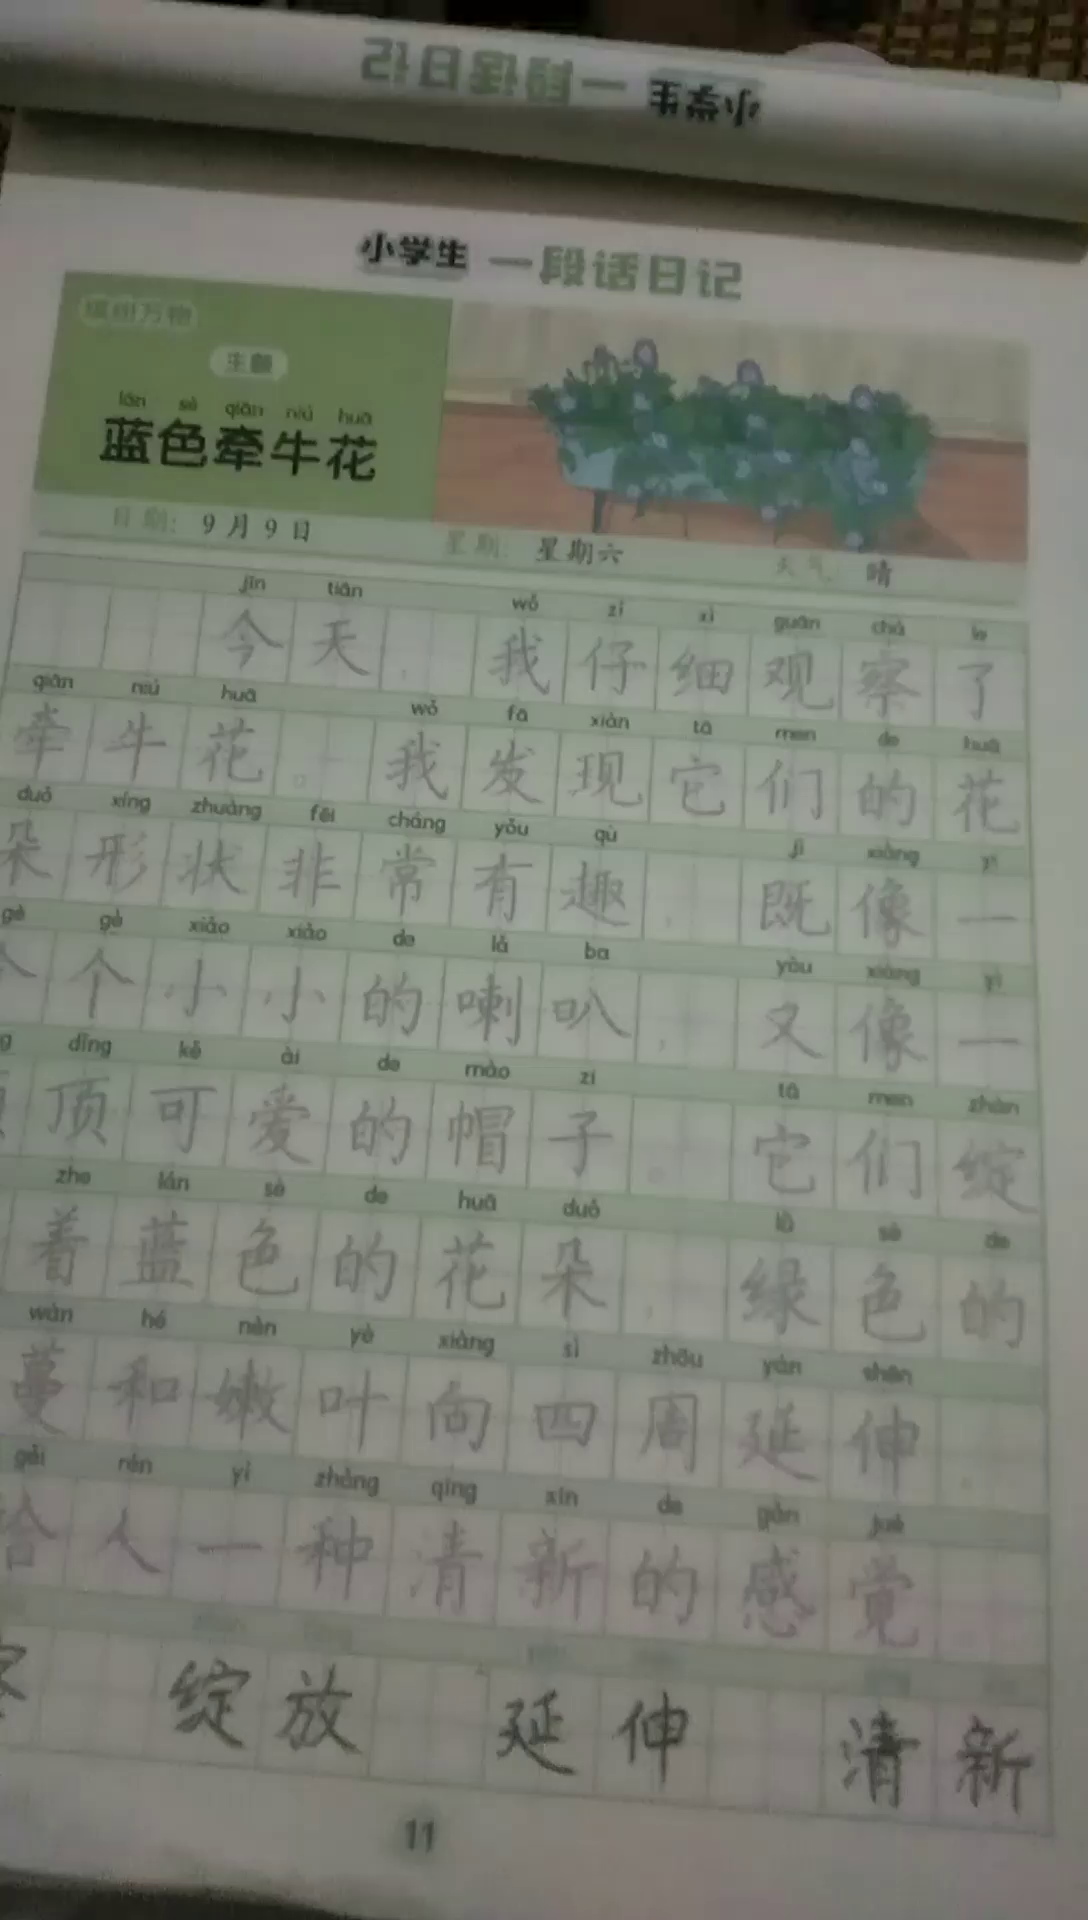 小学生 一段话日记
小学生 一段话日记
主题
lán sè qiān niú huā
蓝色牵牛花
日期: 9月9日 星期: 星期六 天气 晴
jīn tiān wǒ zǐ xì guān chá le
今天，我仔细观察了
qiān niú huā wǒ fā xiàn tā men de huā
牵牛花。我发现它们的花
duǒ xíng zhuàng fēi cháng yǒu qù jì xiàng yī
朵形状非常有趣，既像一
gè gè xiǎo xiǎo de lǎ ba yòu xiàng yì
个个小小的喇叭，又像一
dǐng kě ài de mào zi tā men zhàn
顶可爱的帽子。它们绽
zhe lán sè de huā duǒ lǜ sè de
着蓝色的花朵，绿色的
wàn hé nèn yè xiàng sì zhōu yán shēn
蔓和嫩叶向四周延伸，
gěi rén yì zhǒng qīng xīn de gǎn jué
给人一种清新的感觉。
绽放 延伸 清新
11